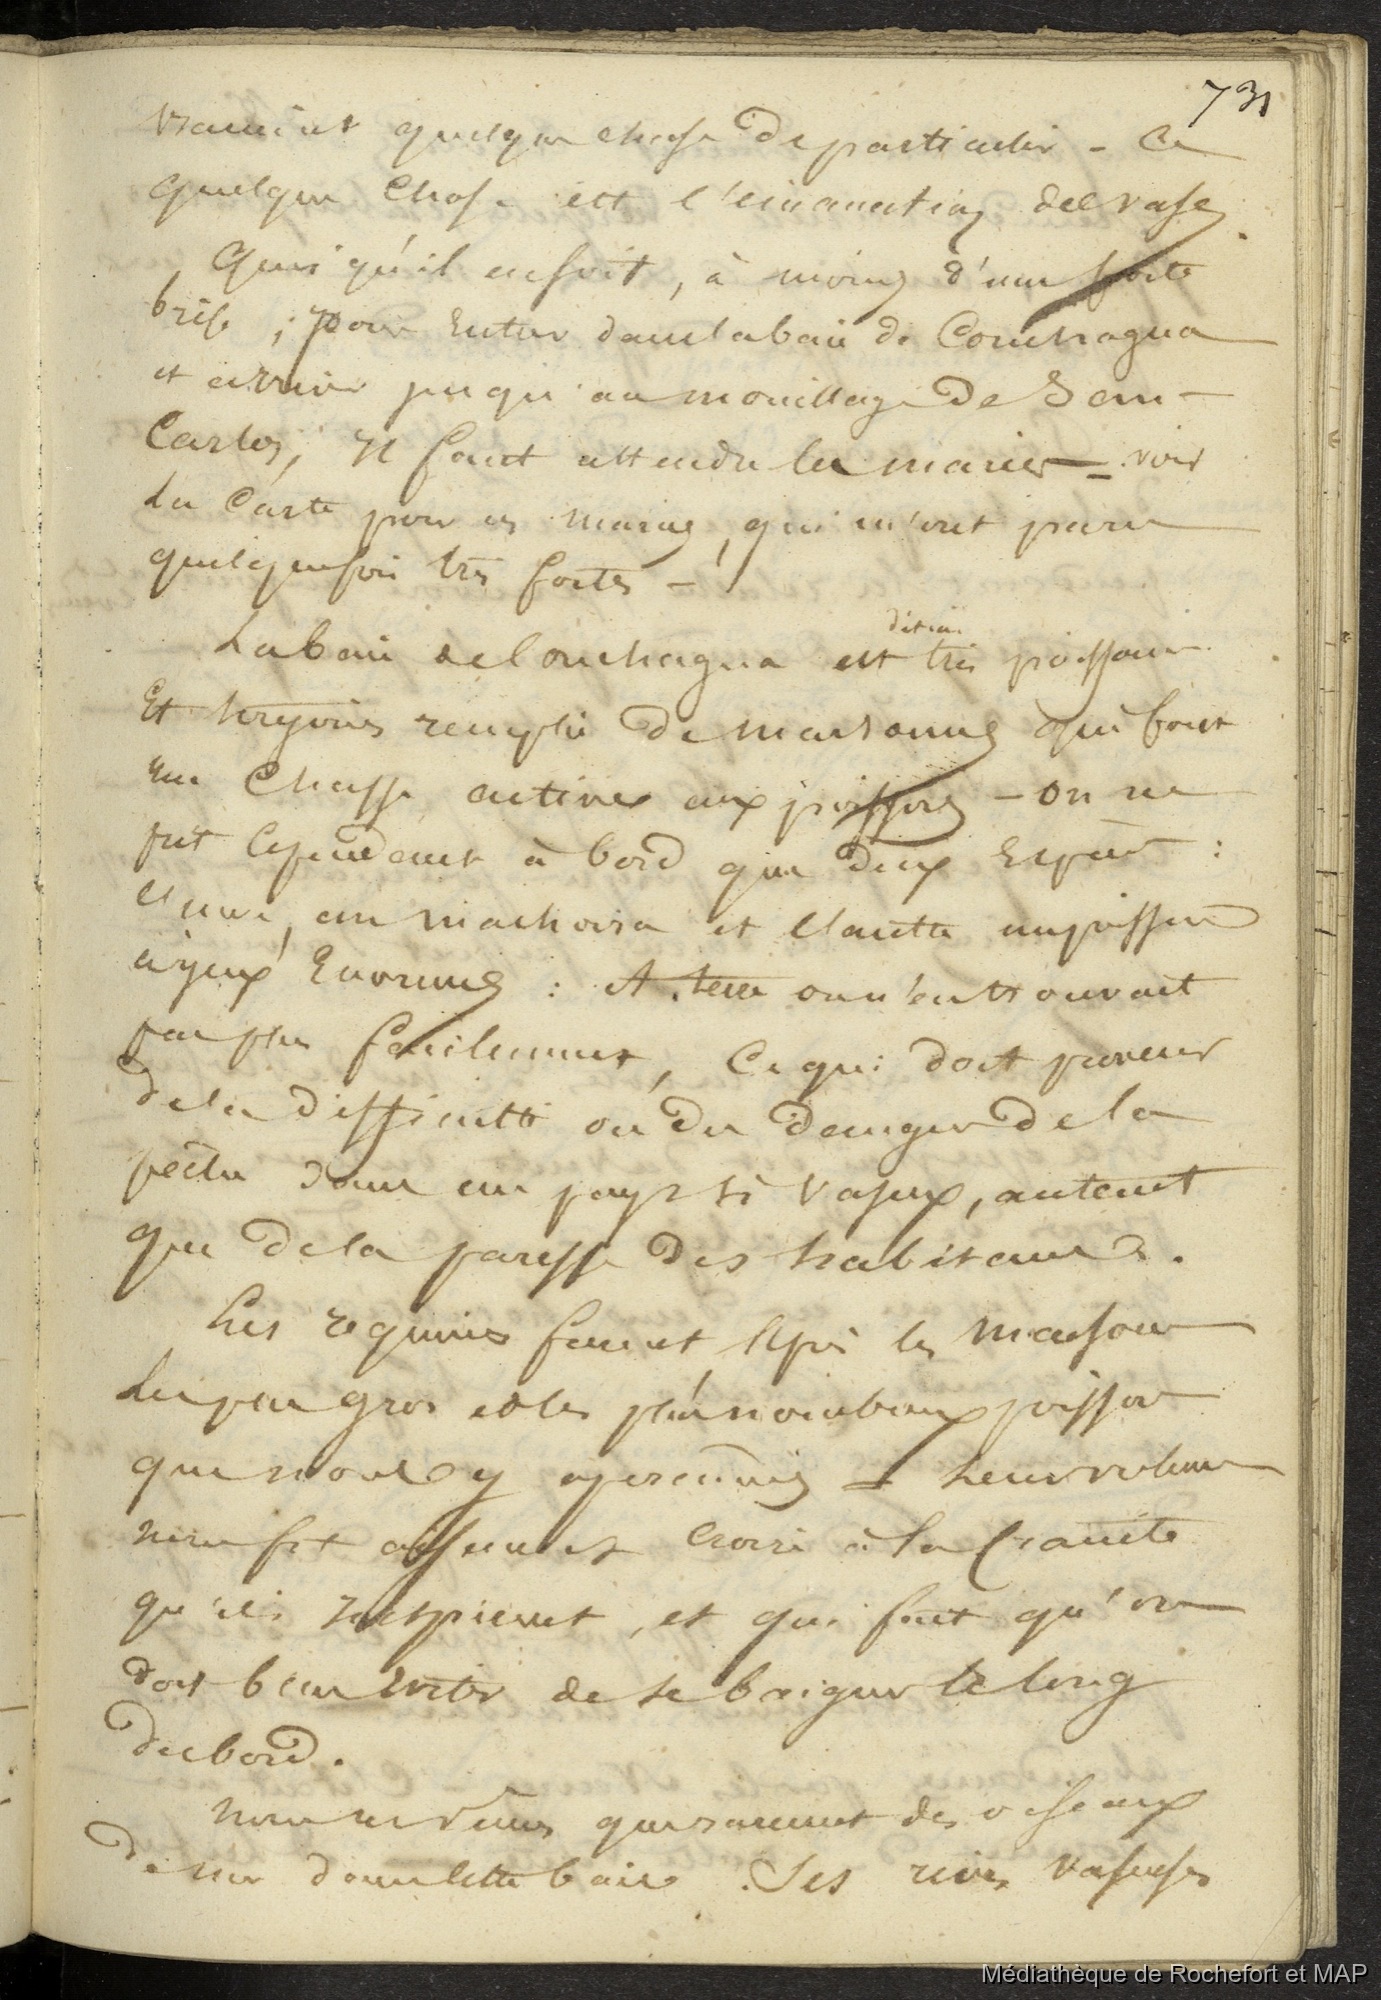 731
vraiment quelque chose de particulier - Ce
quelque chose est l'émanation des vases.
Quoi qu'il en soit, à moins d'une forte
brise, pour entrer dans la baie de Conchagua
et arriver jusqu'au mouillage de San-
Carlos, il faut attendre les marées - voir
la carte pour les marées, qui m'ont paru
quelquefois très fortes -
La baie de Conchagua est dit-on très poissonneuse
Et toujours remplie de marsouins qui font
une chasse active aux poissons - on ne
prit cependant à bord que deux espèces :
l'une, un machoiran et l'autre un poisson
à yeux énormes : A terre on n'en trouvait
pas plus facilement, ce qui doit provenir
de la difficulté ou du danger de la
pêche dans un pays si vaseux, autant
que de la paresse des habitants.
Les requins furent après les marsouins
les plus gros et les plus nombreux poissons
que nous y aperçûmes - leur
nous fit aisément croire à la crainte
qu'ils inspirent, et qui fait qu'on
doit bien éviter de se baigner le long
du bord.
Nous ne vîmes que rarement des oiseaux
de mer dans cette baie. Ses rives vaseuses
Médiathèque de Rochefort et MAP